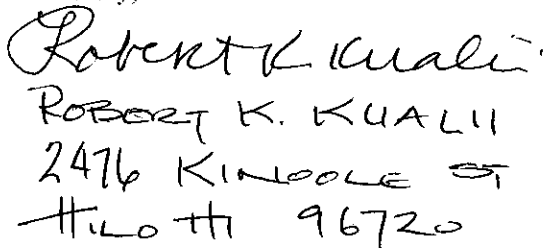 Robert K Kualii
ROBERT K. KUALII
2476 KINOOLE ST
HILO HI 96720